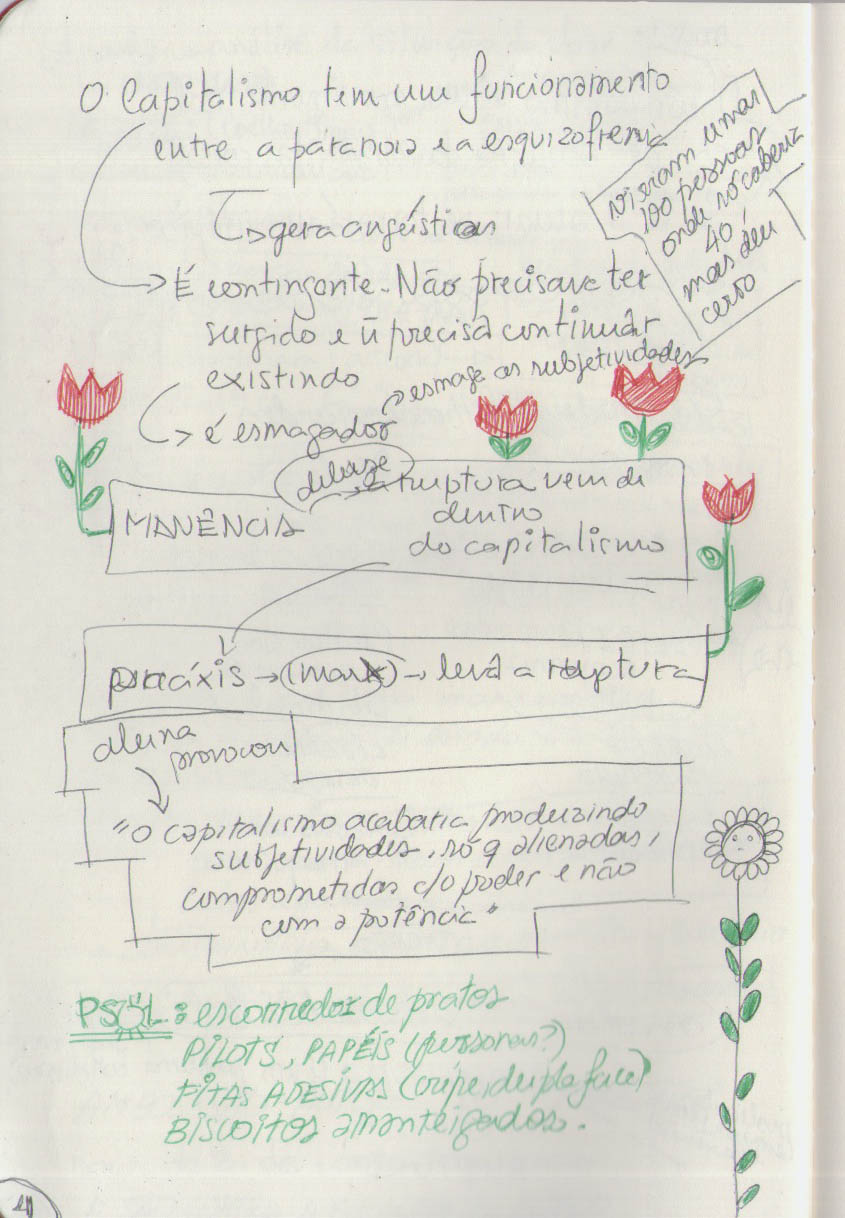 O Capitalismo tem um funcionamento
entre a paranoia e a esquizofrenia
gera angústias
vieram umas
100 pessoas
onde só caberia
40,
mas deu
certo
É contingente. Não precisava ter
surgido e ñ precisa continuar
existindo
é esmagador
esmaga as subjetividades
deleuze
IMANÊNCIA
a ruptura vem de
dentro
do capitalismo
práxis → (marx) → leva a ruptura
aluna
provocou
"O capitalismo acabaria produzindo
subjetividades, só q alienadas,
comprometidas c/o poder e não
com a potência"
PSOL: escorredor de pratos
PILOTS, PAPÉIS (personas?)
FITAS ADESIVAS (crepe, dupla face)
BISCOITOS amanteigados.